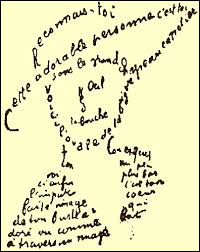 Reconnais-toi
Cette adorable personne c'est toi
sous le grand chapeau canotier
Œil
la bouche
Voici l'ovale de ta figure
ton cou exquis
voi
ci enfin
l'impar
faite image
de ton buste a
doré vu comme
à travers un nuage
un peu
plus bas
c'est ton
coeur
qui
bat